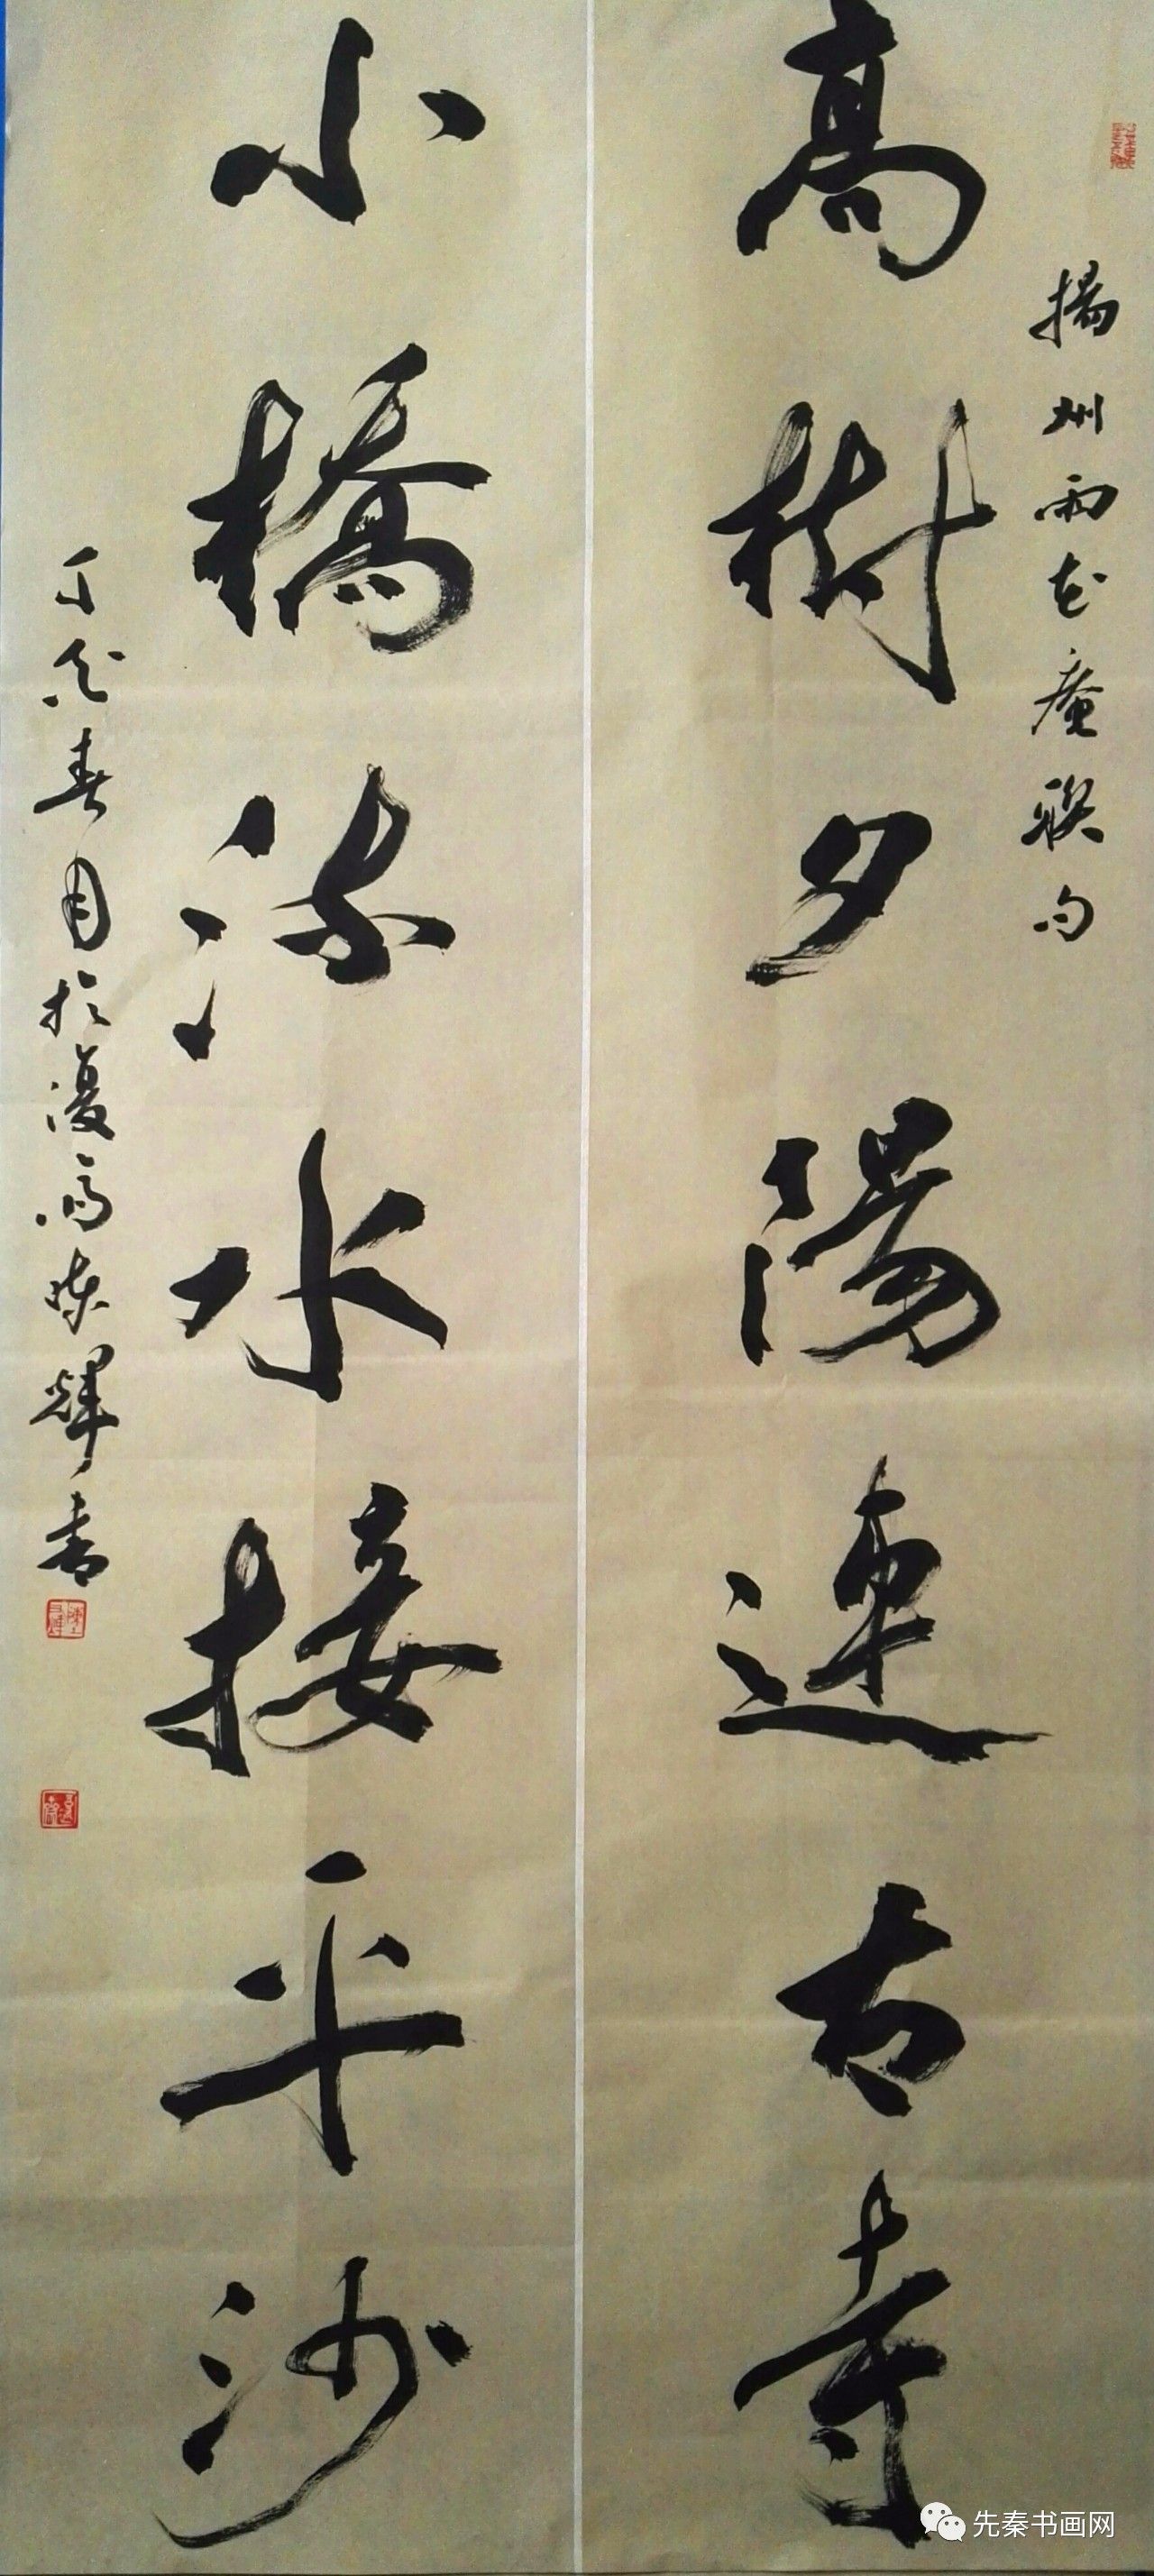 揚州雨花庵联句
高樹夕陽連古寺
小橋流水接平沙
丁酉春月於漫
輝書
先秦书画网